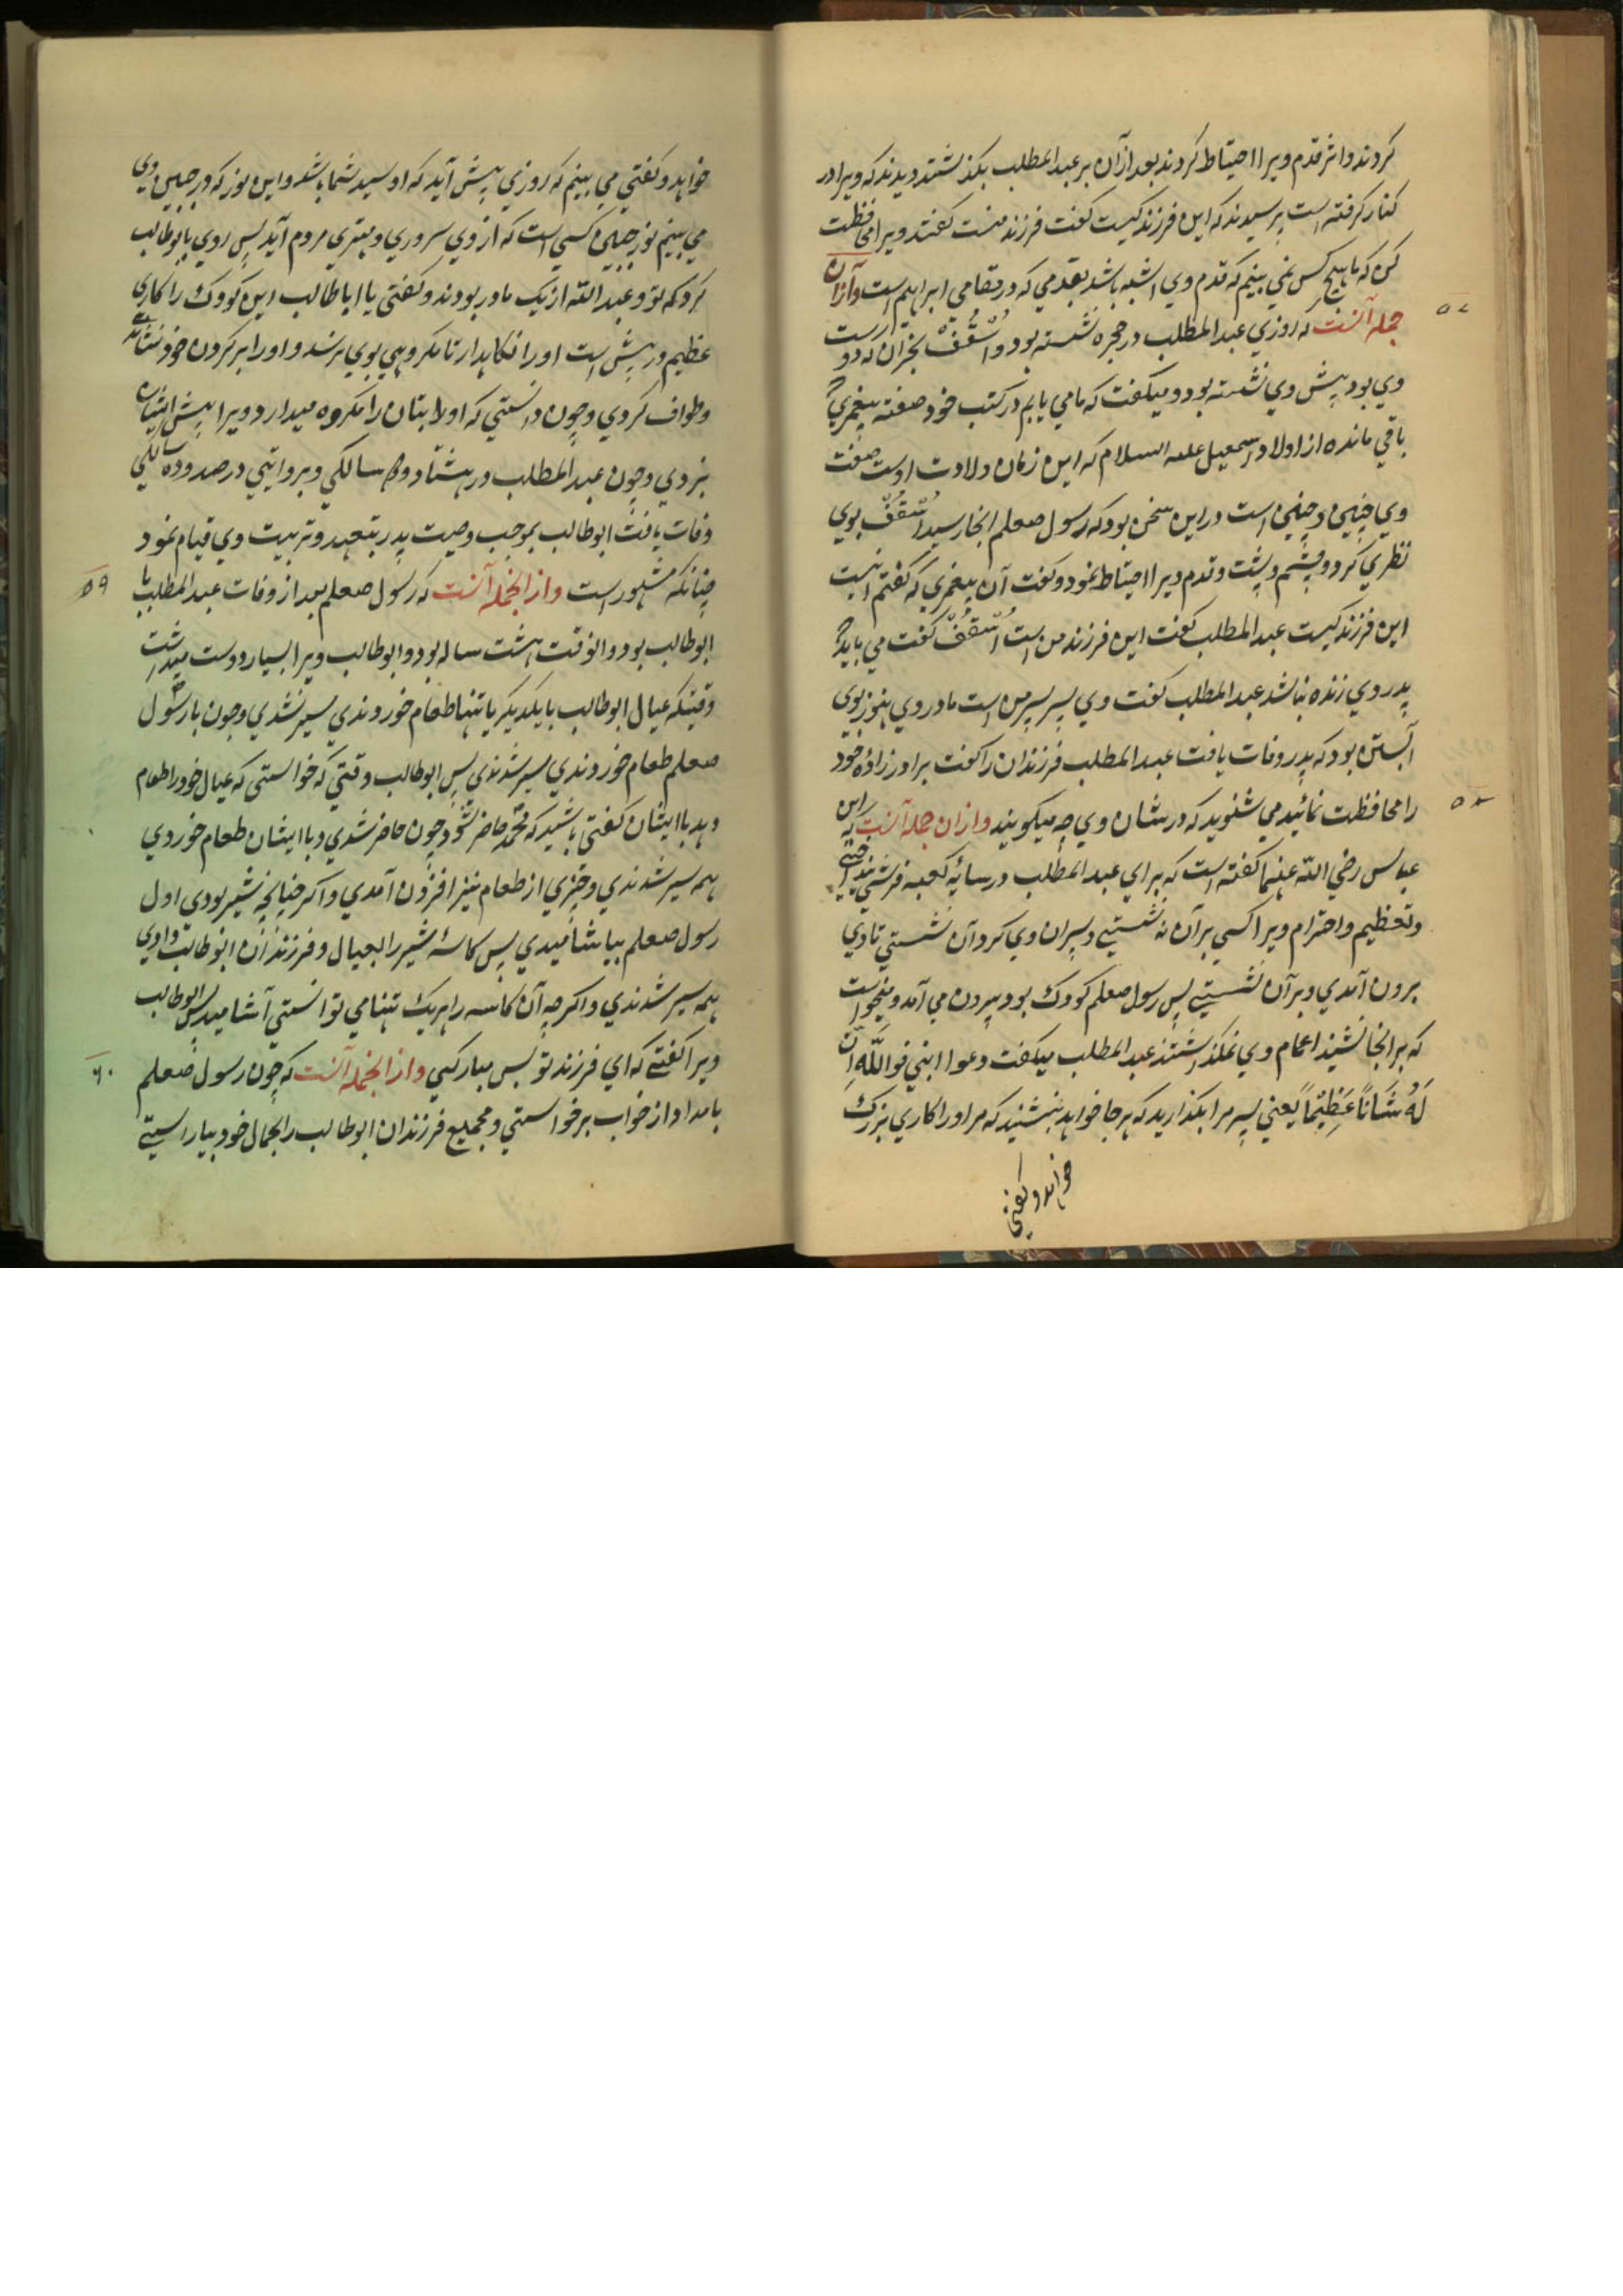 کردند واثر قدم ویرا احتیاط کردند بعد ازان بر عبد المطلب بگذشتند دیدند که ویرا در
کنار گرفته است پرسیدند که این فرزند کیست گفت فرزند منست گفتند ویرا محافظت
کن که ما هیچ کس نمی بینیم که قدم وی اشبه باشد بقدمی که در مقامی ابراهیم است وازان
۵۷
جمله آنست که روزی عبد المطلب در حجره نشسته بود واُسْقُفّ نجران که دوست
وی بود پیش وی نشسته بود و میگفت که ما می یابیم در کتب خود صفت پیغمبری که
باقی مانده از اولاد اسمعیل علیه السلام که این زمان ولادت اوست صفت
وی چنین و چنین است در این سخن بود که رسول صعلم انجا رسید اُسْقُفّ بوی
نظری کرد و چشم و پشت و قدم ویرا احتیاط نمود و گفت آن پیغمبری که گفتم اینست
این فرزند کیست عبد المطلب گفت این فرزند من است اُسْقُفّ گفت می باید که
پدر وی زنده نباشد عبد المطلب گفت وی پسر پسر من است مادر وی هنوز بوی
آبستن بود که پدر وفات یافت عبد المطلب فرزندان را گفت برادر زاده خود
۵۸
را محافظت نمائید می شنوید که در شان وی چه میگویند وازان جمله آنست که ابن
عباس رضی الله عنهما گفته است که برای عبد المطلب در سایهٔ کعبه فرش انداختی
وتعظیم واحترام ویرا کسی برآن نه نشستی وپسران وی گرد آن نشستی تا وی
برون آمدی وبرآن نشستی پس رسول صعلم کودک بود بیرون می آمد و میخواست
که برانجا نشیند اعمام وی نمیگذاشتند عبد المطلب میگفت دعوا ابنی فوالله اِنَّ
لَهُ شَاناً عَظِیْماً یعنی پسر مرا بگذارید که هر جا خواهد بنشیند که مر او را کاری بزرگ
خواهد و گفتی
خواهد و گفتی می بینم که روزی پیش آید که او سید شما باشد واین نور که در جبین وی
می بینم نور جبین کسی است که از وی سروری ومهتری مردم آید پس روی بابو طالب
کرد که تو وعبد الله از یک مادر بودند و گفتی یا ابا طالب این کودک را کاری
عظیم در پیش است او را نگاهدار تا مکروهی بوی نرسد و او را بر گردن خود نشاندی
وطواف کردی وچون دانستی که او لات بتان را مکروه میدارد ویرا پیش ایشان
نبردی وچون عبد المطلب در هشتاد و دو سالگی وبروایتی در صد و ده سالگی
وفات یافت ابو طالب بموجب وصیت پدر بتعهد وتربیت وی قیام نمود
۵۹
چنانکه مشهور است وازانجمله آنست که رسول صعلم بعد از وفات عبد المطلب با
ابو طالب بود و انوقت هشت ساله بود و ابو طالب ویرا بسیار دوست میداشت
وقتیکه عیال ابو طالب با یکدیگر یا تنها طعام خوردندی سیر نشدی وچون با رسول
صعلم طعام خوردندی سیر شدندی پس ابو طالب وقتی که خواستی که عیال خود را طعام
دهد با ایشان گفتی باشید که محمد حاضر شود چون حاضر شدی و با ایشان طعام خوردی
همه سیر شدندی وچیزی از طعام نیز افزون آمدی واکر چنانچه شیر بودی اول
رسول صعلم بیاشامیدی پس کاسهٔ شیر را بعیال وفرزندان ابو طالب دادی
همه سیر شدندی واکر چه آن کاسه را هریک تنها می توانستی آشامید پس ابو طالب
۶۰
ویرا گفتی که ای فرزند تو بس مبارکی وازانجمله آنست که چون رسول صعلم
بامداد از خواب برخواستی و مجمیع فرزندان ابو طالب را بجمال خود بیاراستی